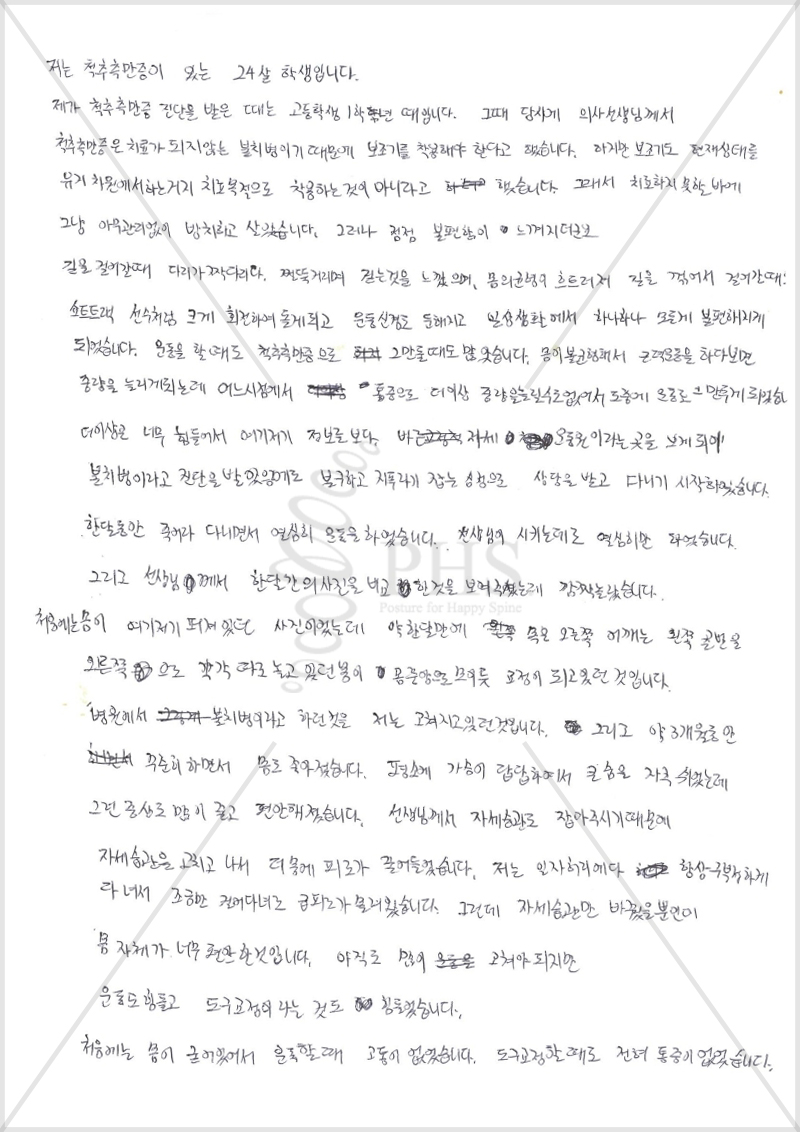 저는 척추측만증이 있는 24살 학생입니다.
제가 척추측만증 진단을 받은 때는 고등학생 1학년 때입니다. 그때 당시에 의사선생님께서
척추측만증은 치료가 되지않는 불치병이기 때문에 보조기를 착용해야 한다고 했습니다. 하지만 보조기도 현재상태를
유지 차원에서하는거지 치료목적으로 착용하는것이 아니라고 했습니다. 그래서 치료하지 못할바에
그냥 아무관리없이 방치하고 살았습니다. 그러나 점점 불편함이 느껴지더군요
길을 걸어갈때 다리가 짝다리다. 쩐뚝거리며 걷는것을 느꼈으며, 몸의균형이 흐트러져 길을 꺾어서 걸어갈때
쇼트트랙 선수처럼 크게 회전하여 돌게되고 운동신경도 둔해지고 일상생활에서 하나하나 모든게 불편해지게
되었습니다. 운동을 할때도 척추측만증으로 그만둘때도 많았습니다. 몸이불균형해서 근력운동을 하다보면
중량을 늘리게되는데 어느시점에서 통증으로 더이상 중량을늘릴수도없어서 도중에 운동도 그만두게 되었습니다
더이상은 너무 힘들어서 여기저기 정보로보다. 바른자세 운동원이라는 곳을 보게 되어
불치병이라고 진단을 받았음에도 불구하고 지푸라기 잡는 심정으로 상담을 받고 다니기 시작하였습니다.
한달동안 죽어라 다니면서 열심히 운동을하였습니다. 선생님이 시키는데로 열심히만 하였습니다.
그리고 선생님께서 한달간의사진을 비교한것을 보여주셨는데 깜짝놀랐습니다.
PHS
Posture for Happy Spine
처음에는몸이 여기저기 퍼져있던 사진이었는데 약한달만에 목은 오른쪽 어깨는 왼쪽 골반은
오른쪽으로 각각 따로 놀고 있던몸이 몸중앙으로 모이듯 교정이 되고있던 것입니다.
병원에서 불치병이라고 하던것을 저는 고쳐지고있던것입니다. 그리고 약3개월동안
꾸준히 하면서 몸도 좋아졌습니다. 평소에 가슴이 답답하여서 큰숨을 자주 쉬었는데
그런 증상도 많이 줄고 편안해졌습니다. 선생님께서 자세습관도 잡아주시기때문에
자세습관을 고치고 나서 더욱에 피로가 줄어들었습니다. 저는 일자허리에다 항상구부정하게
다녀서 조금만 걸어다녀도 금피로가 몰려왔습니다. 그런데 자세습관만 바꿨을뿐인데
몸 자체가 너무 편안한것입니다. 아직도 많이 고쳐야 되지만
운동도힘들고 도구교정이라는 것도 힘들었습니다.
처음에는 몸이 굳어있어서 운동할때 고통이 없었습니다. 도구교정할때도 전혀 통증이없었습니다.